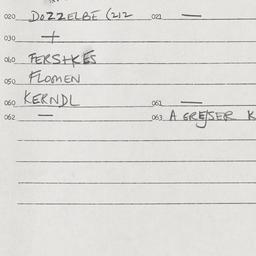 020 DOZZELBE (212 021 —
030 +
060 FERSTKES
050 FLOMEN
060 KERNDL 061 —
062 — 063 A GREJSER K